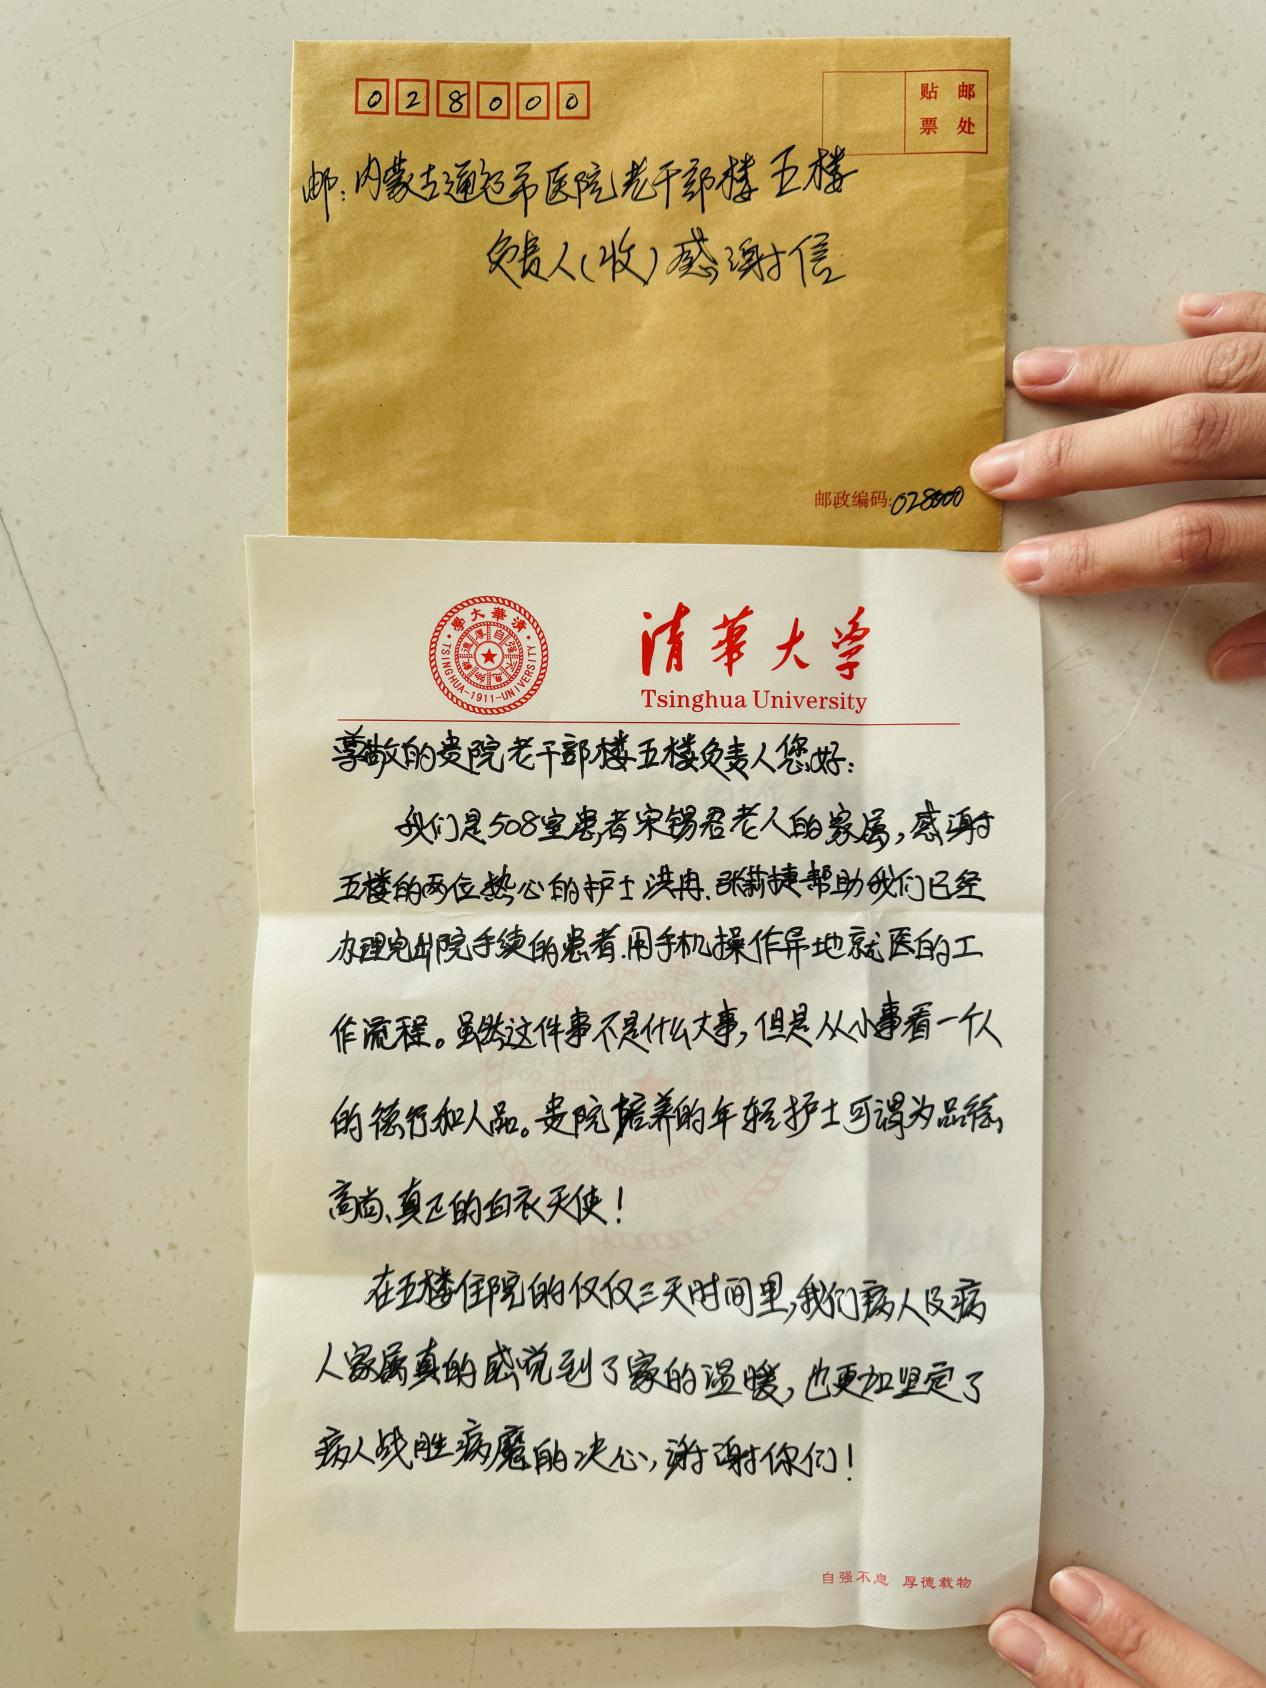 028000
贴 邮
票 处
邮:内蒙古通辽市医院老干部楼五楼
负责人(收)感谢信
邮政编码:028000
清華大學
TSINGHUA-1911-UNIVERSITY
自强不息
厚德載物
清華大学
Tsinghua University
尊敬的贵院老干部楼五楼负责人您好:
我们是508室患者宋锡君老人的家属,感谢
五楼的两位热心的护士洪冉、张薪捷帮助我们已经
办理完出院手续的患者.用手机操作异地就医的工
作流程。虽然这件事不是什么大事,但是从小事看一个人
的德行和人品。贵院培养的年轻护士可谓为品德
高尚、真正的白衣天使!
在五楼住院的仅仅三天时间里,我们病人及病
人家属真的感觉到了家的温暖,也更加坚定了
病人战胜病魔的决心,谢谢你们!
自强不息 厚德载物